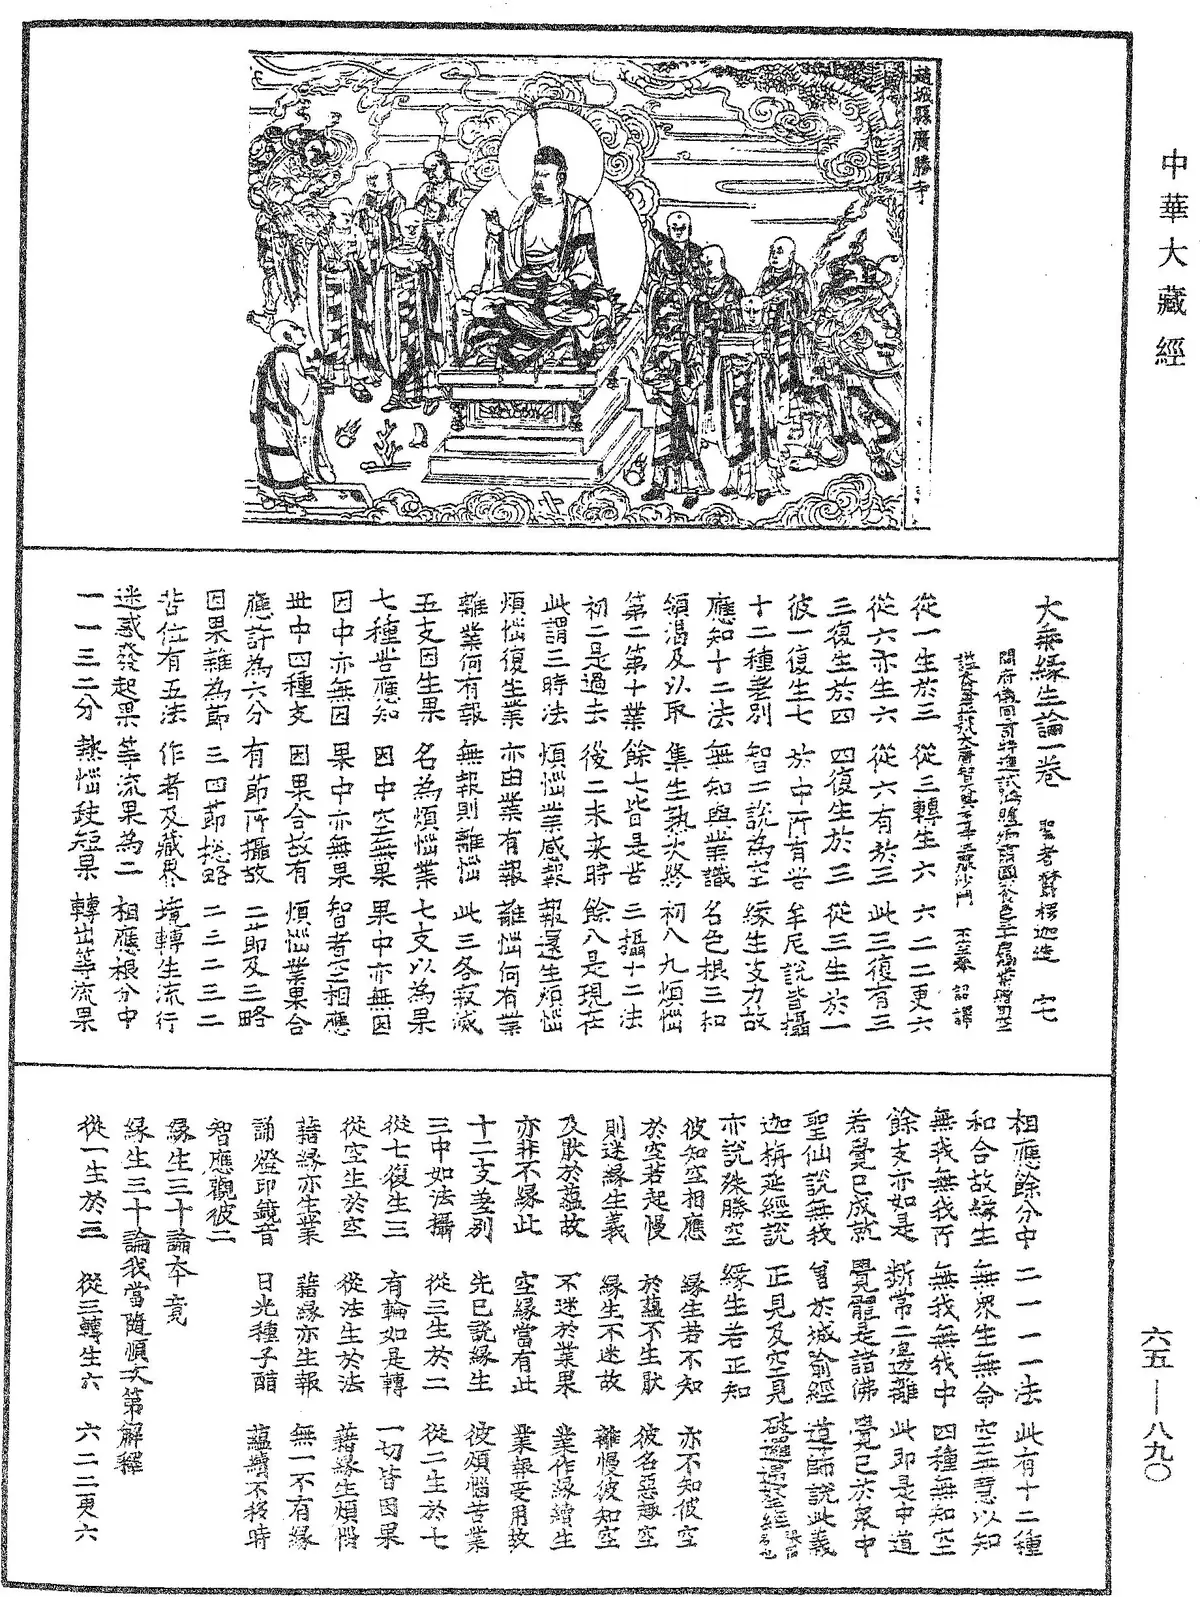 中華大藏經
趙城縣廣勝寺
大乘緣生論一卷 聖者欝楞迦造 宅
開府儀同三司特進試鴻臚卿肅國公食邑三千戶賜紫贈司空
謚大鑒正號大廣智大興善寺三藏沙門 不空奉 詔譯
從一生於三 從三轉生六 六二二更六
從六亦生六 從六有於三 此三復有三
三復生於四 四復生於三 從三生於一
彼一復生七 於中所有苦 牟尼說皆攝
十二種差別 智二說為空 緣生支力故
應知十二法 無知與業識 名色根三和
領渴及以取 集生熟火終 初八九煩惱
第二第十業 餘七皆是苦 三攝十二法
初二是過去 後二未來時 餘八是現在
此謂三時法 煩惱業感報 報還生煩惱
煩惱復生業 亦由業有報 離惱何有業
離業何有報 無報則離惱 此三各寂滅
五支因生果 名為煩惱業 七支以為果
七種苦應知 因中空無果 果中亦無因
因中亦無因 果中亦無果 智者空相應
世中四種支 因果合故有 煩惱業果合
應許為六分 有節所攝故 二節及三略
因果雜為節 三四節摠略 二三二三二
苦位有五法 作者及藏界 境轉生流行
迷惑發起果 等流果為二 相應根分中
一一三二分 熱惱缺短果 轉出等流果
相應餘分中 二一一一法 此有十二種
和合故緣生 無眾生無命 空無慧以知
無我無我所 無我無我中 四種無知空
餘支亦如是 斷常二邊離 此即是中道
若覺已成就 覺體是諸佛 覺已於眾中
聖仙說無我 曾於城喻經 導師說此義
迦旃延經說 正見及空見 破邏具拏經
亦說殊勝空 緣生若正知
彼知空相應 緣生若不知 亦不知彼空
於空若起慢 於蘊不生猒 彼名惡趣空
則迷緣生義 緣生不迷故 離慢彼知空
及猒於蘊故 不迷於業果 業作緣續生
亦非不緣此 空緣當有此 業報受用故
十二支差別 先已說緣生 彼煩惱苦業
三中如法攝 從三生於二 從二生於七
從七復生三 有輪如是轉 一切皆因果
從空生於空 從法生於法 藉緣生煩惱
藉緣亦生業 藉緣亦生報 無一不有緣
誦燈印鏡音 日光種子醋 蘊續不移時
智應觀彼二
緣生三十論本竟
緣生三十論我當隨順次第解釋
從一生於三 從三轉生六 六二二更六
六五——八九〇